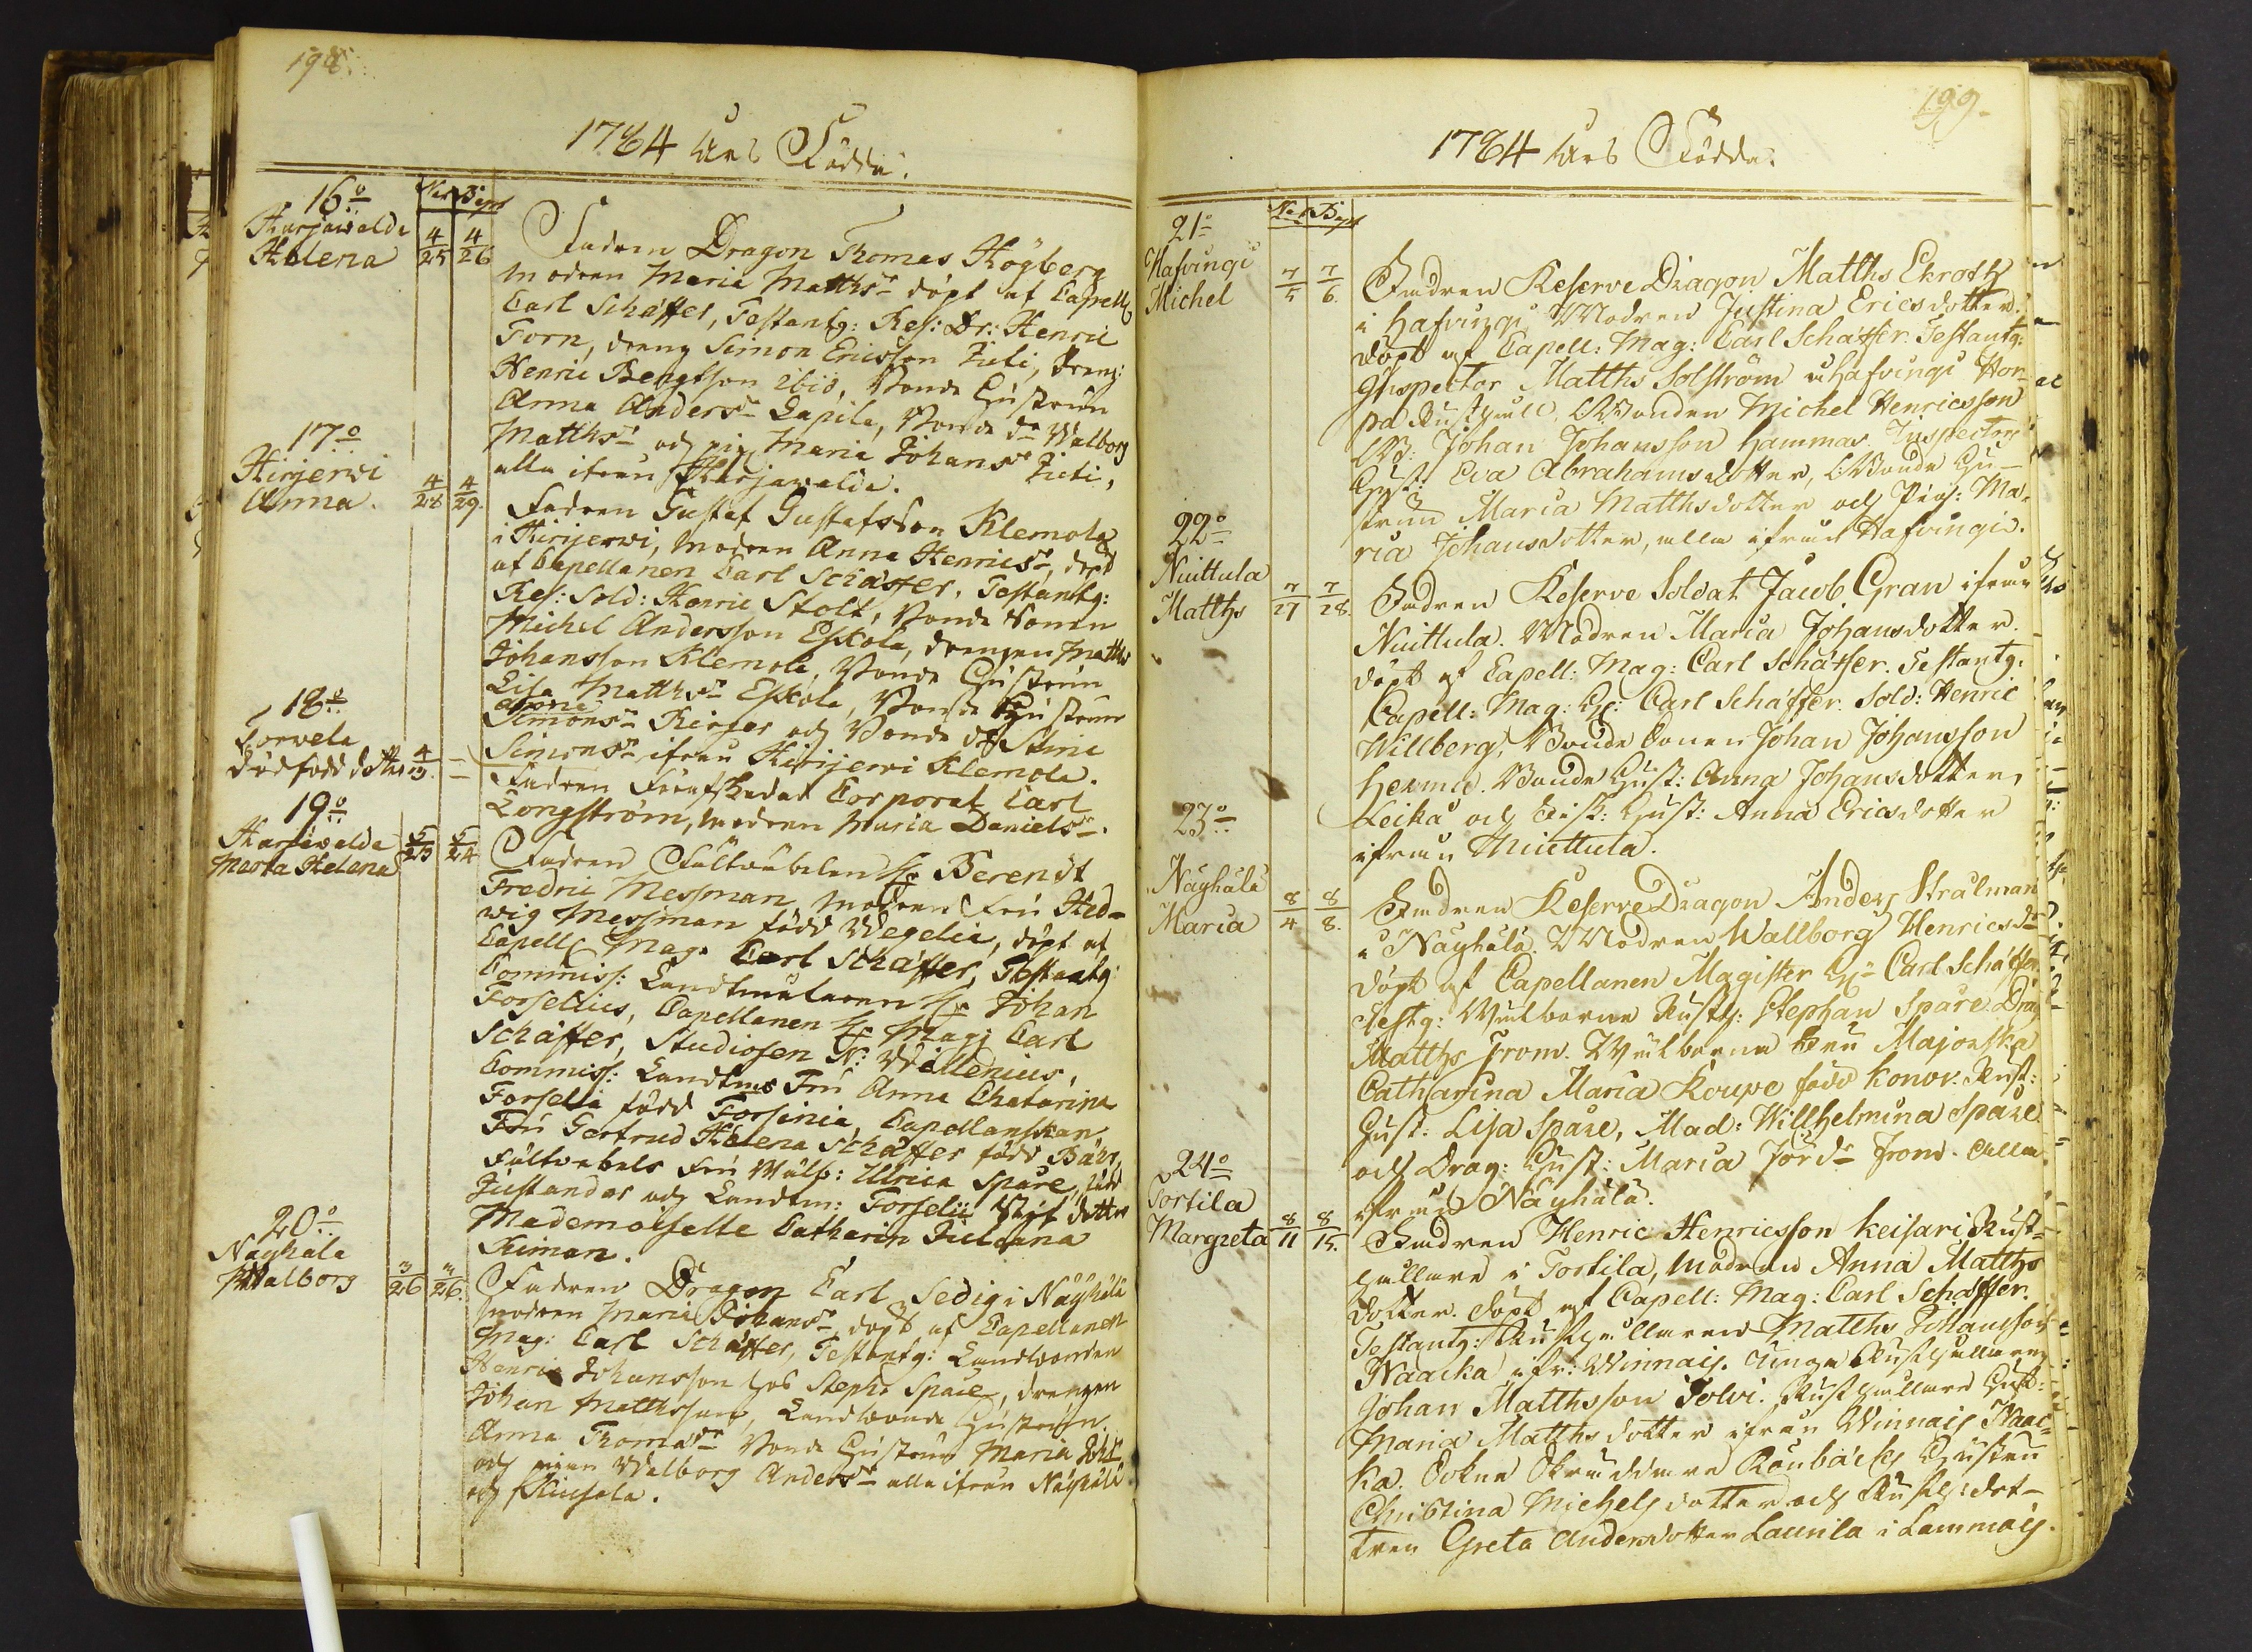 198.
1784 Års Födde.
Nat. Bapt
16o
Karjawalda
Helena
4/25 4/26
Fadren Dragon Thomas Högberg
Modren Maria Matths dr döpt af Capell
Carl Schäffer, Testantg: Res: Dr: Henric
Forn, dreng Simon Ericsson Zuti, dreng:
Henric Bengtson ibid, Bonde Hustrun
Anna Anders dr Lapila, Bonde dr Walborg
Matths dr och pig. Maria Johans dr Zuti,
alla ifrån Karjawalda.
17o
Kirjerwi
Anna.
4/28 4/29.
Fadren Gustaf Gustafsson Klemola
i Kirijerwi, Modren Anna Henrics dr, döpt
af Capellanen Carl Schäffer. Testantg:
Res: Sold: Henric Stolt, Bonde Sonen
Michel Andersson Eskola, drengen Matths
Johansson Klemola, Bonde Hustrun
Lisa Matths dr Eskola, Bonde Hustrun
Anna
Simons dr och Bonde dr Stina
Simons dr ifrån Kirijerwi Klemola.
18o
Torvela
dödfödd dotter
Fadren Corporal Carl
Longström, Modren Maria Daniels dr.
19o
Karjawalda
Maria Helena
5/23 5/24
Fadren Fältväbelen Hr Berendt
Fredric Messman, Modren Fru Hed-
wig Messman född Wegelia, döpt af
Capell Mag. Carl Schäffer, Testantg:
Commiss: Landtmätaren Hr Johan
Forselius, Capellanen Hr Mag: Carl
Schäffer, Studiosen N: Willenius,
Commiss: Landtms Fru Anna Chatarina
Forselia född Forsinia, Capellanskan
Fru Gertrud Helena Schäffer född Bäck,
Fältväbels Fru Wälb: Ulrica Spåre,
och Landtm: Forselii Styf dotter
Mademoiselle Catharin Juliana
Kiman.
20o
Näyhälä
Walborg
3/26 3/26.
Fadren Dragon Carl Sedig i Näyhälä
modren Maria Johans dr döpt af Capellanen
Mag: Carl Schäffer, Testantg: Landbonden
Henric Johansson hos Steph: Spåre, drengen
Johan Matthsson, Landbonde Hustrun
Anna Thoma dr Bonde Hustrun Maria
och pigan Walborg Anders dr alla ifrån Näyhälä
och
199.
1784 Års Födde.
Nat Bapt
21o
Hafvingi
Michel
7/5 7/6.
Fadren Reserve Dragon Matths Ekroth
i Hafvingi, Modren Justina Ericsdotter.
döpt af Capell: Mag: Carl Schäffer. Testantg:
Inspector Matths Solström å Hafvingi Hor-
pa Rusthåll, Bonden Michel Henricsson
B: Johan Johansson Hammar. Inspectors
Hust: Eva Abrahamsdotter, Bonde Hu-
strun Maria Matthsdotter och Pig: Ma-
ria Johansdotter, alla ifrån Hafvingi.
22o
Niuttula
Matths
7/27 7/28.
Fadren Reserve Soldat Jacob Gran ifrån
Niuttula. Modren Maria Johansdotter.
döpt af Capell: Mag: Carl Schäffer. Testantg:
Capell: Mag: Hr: Carl Schäffer. Sold: Henric
Willberg, Bonde Sonen Johan Johansson
Hermla. Bonde Hust: Anna Johansdotter,
Leikä och Hust: Anna Ericsdotter
ifrån Niuttula.
23o
Näyhälä
Maria
8/4 8/8.
Fadren Reserve Dragon Anders Strålman
i Näyhälä. Modren Wallborg Henrics dr
döpt af Capellanen Magister Hr Carl Schäffer.
Testg: Wälborne Rusth: Stephan Spåre Drag
Matths From. Wälborna Fru Majorska
Catharina Maria Koupe född Konov. Rust:
Hust: Lisa Spåre, Mad: Willhelmina Spåre
och Drag: Hust: Maria Jör dr From. Alla
ifrån Näyhälä.
24o
Sortila
Margreta
8/11 8/15.
Fadren Henric Henricsson Keisari Rust-
hållare i Tortila, Modren Anna Matths
dotter. döpt af Capell: Mag: Carl Schäffer.
Testantg: Rusthållaren Matths Johansson
Naacka ifr: Winnais. Unga Rusthållaren
Johan Matthsson Tolvi. Rusthållare Hust:
Maria Matthsdotter ifrån Winnais Naac-
ka. Sokne Skräddare Roubäcks Hustru
Christina Michelsdotter och Rusth: dot-
tren Greta Andersdotter Launila i Lammais.